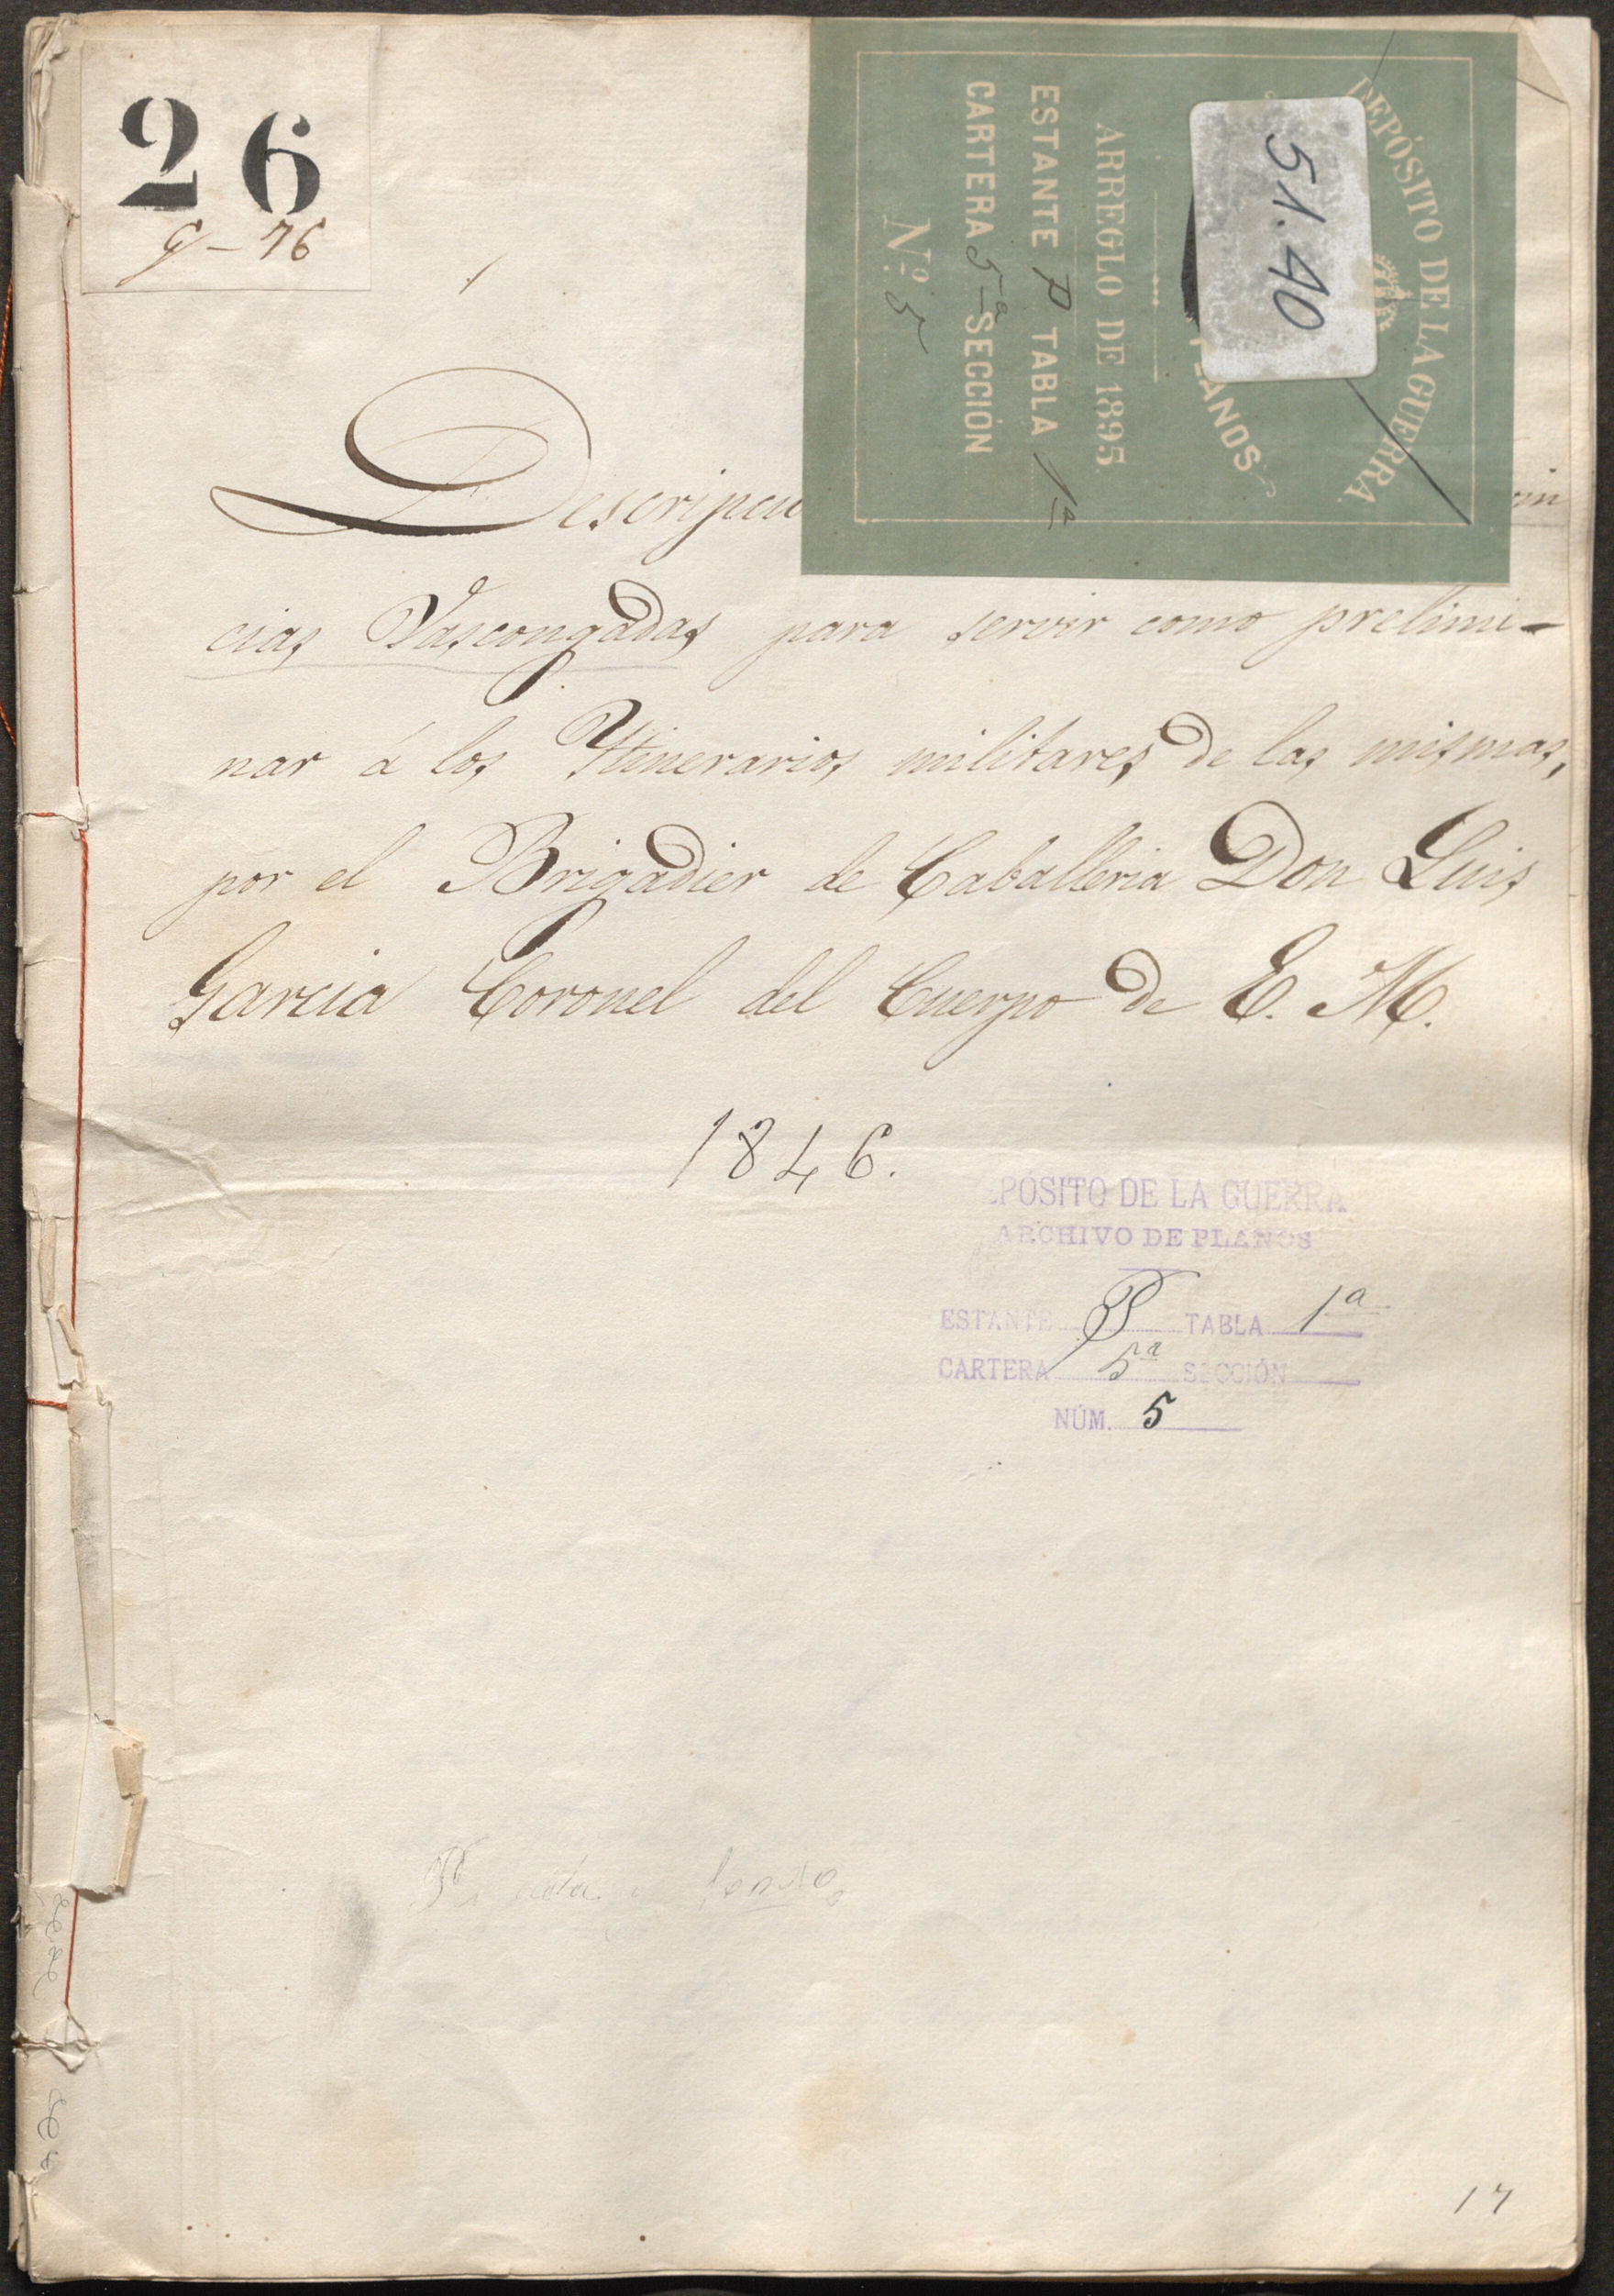 26
G-76
DEPÓSITO DE LA GUERRA
PLANOS
51.40
ARREGLO DE 1895
ESTANTE P TABLA 1ª
CARTERA 5ª SECCIÓN
Nº. 5
Descripcio
cias Vascongadas para servir como prelimi-
nar á los Itinerarios militares de las mismas,
por el Brigadier de Caballeria Don Luis
Garcia Coronel del Cuerpo de E. M.
1846.
EPÓSITO DE LA GUERRA
ARCHIVO DE PLANOS
ESTANTE P TABLA 1ª
CARTERA 5ª SECCIÓN
NÚM. 5
17